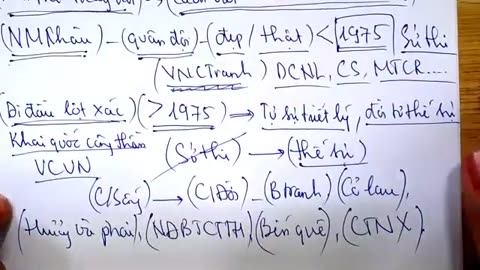 (NMChâu) – (quân đội) – (đẹp / thật) < 1975 Sử thi
(VNCTranh) DCNL, CS, MTCR....
(Đi đầu lột xác) (> 1975) => Tự sự triết lý, đời tư thế sự
Khai quốc công thần (Sử thi) → (thế sự)
VCVN
(C/Sấy) → (C/Đời) – (Btranh) (Cỏ lau),
(thuỷ và phái), (NĐBTCTTH), (Bến quê), (CTNX).